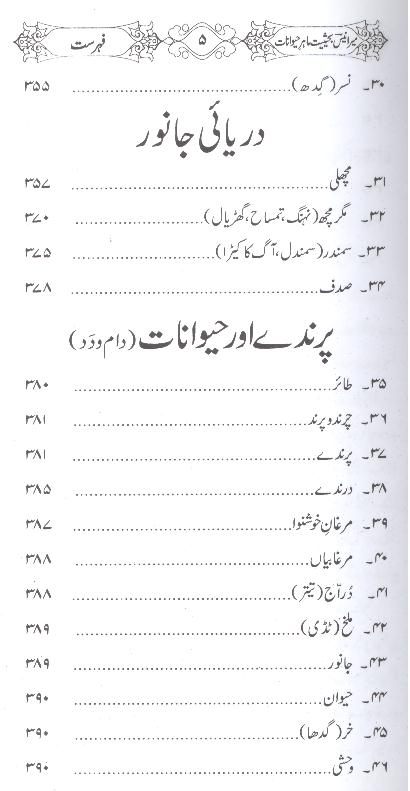 میر انیس بحیثیت ماہر حیوانات ۵ فہرست
۳۰۔ نسر (گِدھ) ۳۵۵
دریائی جانور
۳۱۔ مچھلی ۳۵۷
۳۲۔ مگرمچھ (نہنگ، تمساح، گھڑیال) ۳۷۰
۳۳۔ سمندر (سمندل، آگ کا کیڑا) ۳۷۵
۳۴۔ صدف ۳۷۸
پرندے اور حیوانات (دام و دَد)
۳۵۔ طائر ۳۸۰
۳۶۔ چرند و پرند ۳۸۱
۳۷۔ پرندے ۳۸۱
۳۸۔ درندے ۳۸۵
۳۹۔ مرغانِ خوشنوا ۳۸۷
۴۰۔ مرغابیاں ۳۸۸
۴۱۔ دُرّاج (تیتر) ۳۸۸
۴۲۔ ملخ (ٹڈی) ۳۸۹
۴۳۔ جانور ۳۸۹
۴۴۔ حیوان ۳۹۰
۴۵۔ خر (گدھا) ۳۹۰
۴۶۔ وحشی ۳۹۰